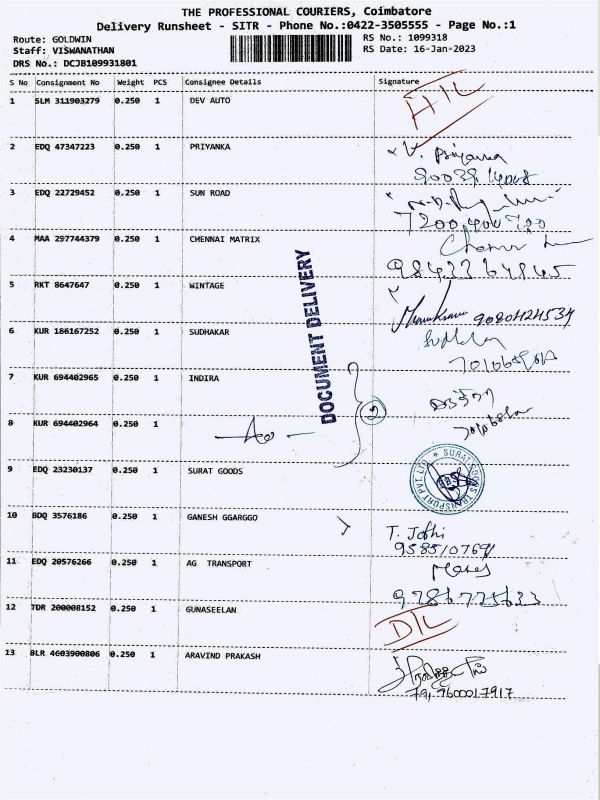 THE PROFESSIONAL COURIERS, Coimbatore
Delivery Runsheet - SITR - Phone No.:0422-3505555 - Page No.:1
Route: GOLDWIN
Staff: VISWANATHAN
DRS No.: DCJB109931801
RS No.: 1099318
RS Date: 16-Jan-2023
S No Consignment No Weight PCS Consignee Details Signature
1 SLM 311903279 0.250 1 DEV AUTO
2 EDQ 47347223 0.250 1 PRIYANKA V. Priyanka
3 EDQ 22729452 0.250 1 SUN ROAD
7200400700
4 MAA 297744379 0.250 1 CHENNAI MATRIX
5 RKT 8647647 0.250 1 WINTAGE
9080424534
6 KUR 186167252 0.250 1 SUDHAKAR
7 KUR 694402965 0.250 1 INDIRA
8 KUR 694402964 0.250 1
DOCUMENT DELIVERY
2
9 EDQ 23230137 0.250 1 SURAT GOODS
SURAT GOODS TRANSPORT PVT.LTD
10 BDQ 3576186 0.250 1 GANESH GGARGGO T. Jothi
11 EDQ 20576266 0.250 1 AG TRANSPORT
9786725633
12 TDR 200008152 0.250 1 GUNASEELAN
D/L
13 BLR 4603900806 0.250 1 ARAVIND PRAKASH
9600017917